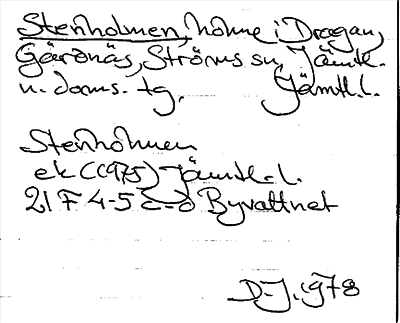 Stenholmen, holme i Dragan,
Gärdnäs, Ströms sn, Jämtl.
n. doms. tg. Jämtl.l.
Stenholmen
ek (1975) Jämtl.l.
21 F 4-5 c-d Byvattnet
D-J. 1978